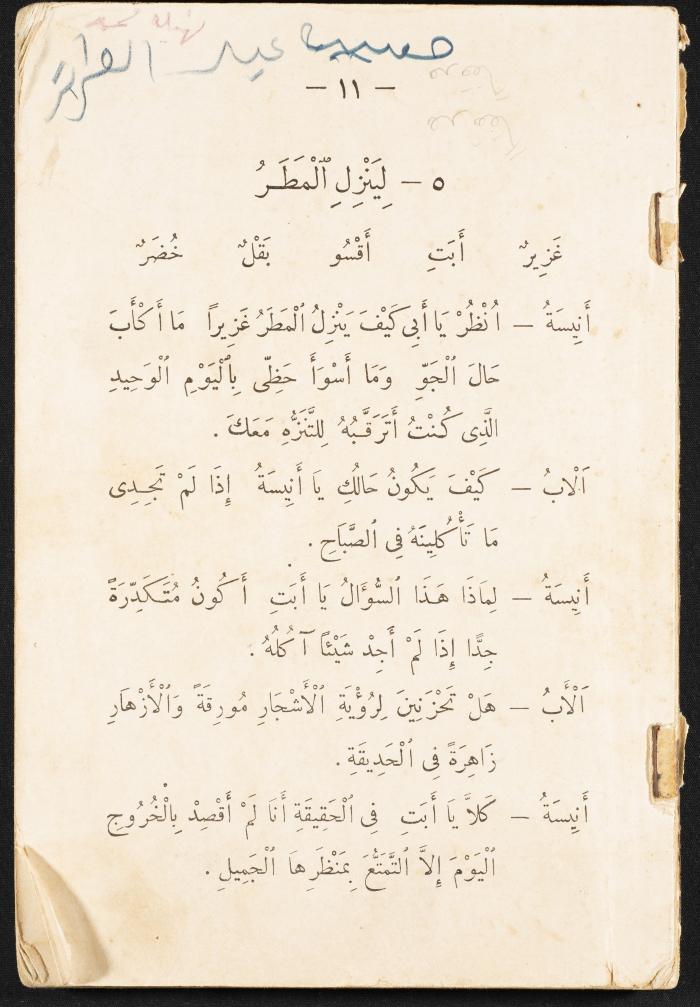 — ١١ —
٥ – لِيَنْزِلِ ٱلْمَطَرُ
غَزِيرٌ أَبَتِ أَقْسُو بَقْلٌ خُضَرٌ
أَنِيسَةُ — اُنْظُرْ يَا أَبِى كَيْفَ يَنْزِلُ ٱلْمَطَرُ غَزِيراً مَا أَكْأَبَ
حَالَ ٱلْجَوِّ وَمَا أَسْوَأَ حَظِّى بِٱلْيَوْمِ ٱلْوَحِيدِ
الَّذِى كُنْتُ أَتَرَقَّبُهُ لِلتَّنَزُّهِ مَعَكَ .
اَلْابُ — كَيْفَ يَكُونُ حَالُكِ يَا أَنِيسَةُ إِذَا لَمْ تَجِدِى
مَا تَأْكُلِينَهُ فِى ٱلصَّبَاحِ .
أَنِيسَةُ — لِمَاذَا هَذَا ٱلسُّؤَالُ يَا أَبَتِ أَكُونُ مُتَكَدِّرَةً
جِدًّا إِذَا لَمْ أَجِدْ شَيْئًا آكُلُهُ .
اَلْأَبُ — هَلْ تَحْزَنِينَ لِرُؤْيَةِ ٱلْأَشْجَارِ مُورِقَةً وَٱلْأَزْهَارِ
زَاهِرَةً فِى ٱلْحَدِيقَةِ .
أَنِيسَةُ — كَلاَّ يَا أَبَتِ فِى ٱلْحَقِيقَةِ أَنَا لَمْ أَقْصِدْ بِٱلْخُرُوجِ
ٱلْيَوْمَ إِلاَّ ٱلتَّمَتُّعَ بِمَنْظَرِهَا ٱلْجَمِيلِ .